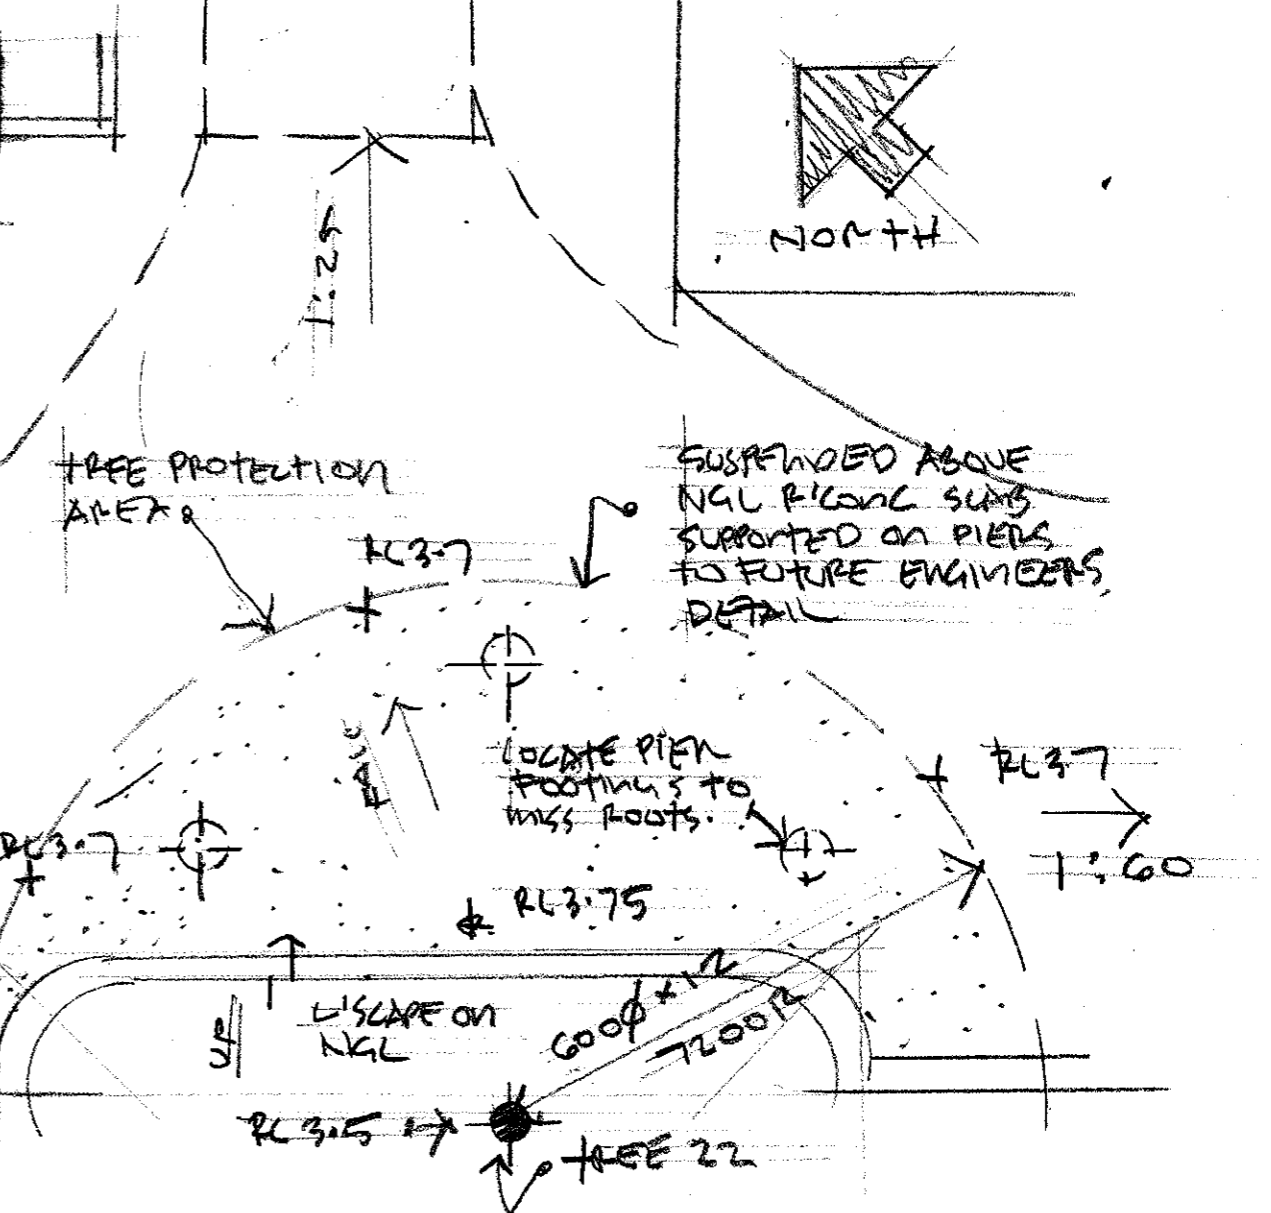 NORTH
1:25
TREE PROTECTION
AREA
SUSPENDED ABOVE
NGL R'CONC SLAB
SUPPORTED ON PIERS
TO FUTURE ENGINEERS
DETAIL
RL3.7
FALL
LOCATE PIER
FOOTINGS TO
MISS ROOTS.
RL3.7
1:60
RL3.7
RL3.75
UP
L'SCAPE ON
NGL
600φ x 12
7200R
RL3.5
TREE 22